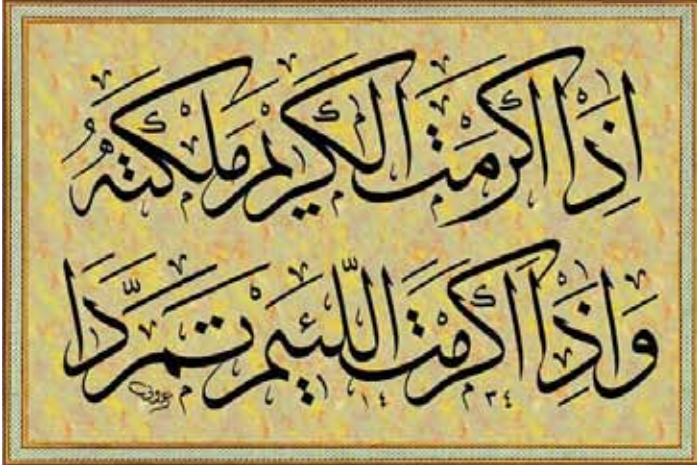 اِذَا اَكْرَمْتَ الْكَرِيْمَ مَلَكْتَهُ
وَاِذَا اَكْرَمْتَ اللَّئِيْمَ تَمَرَّدَا
١٤٣٤